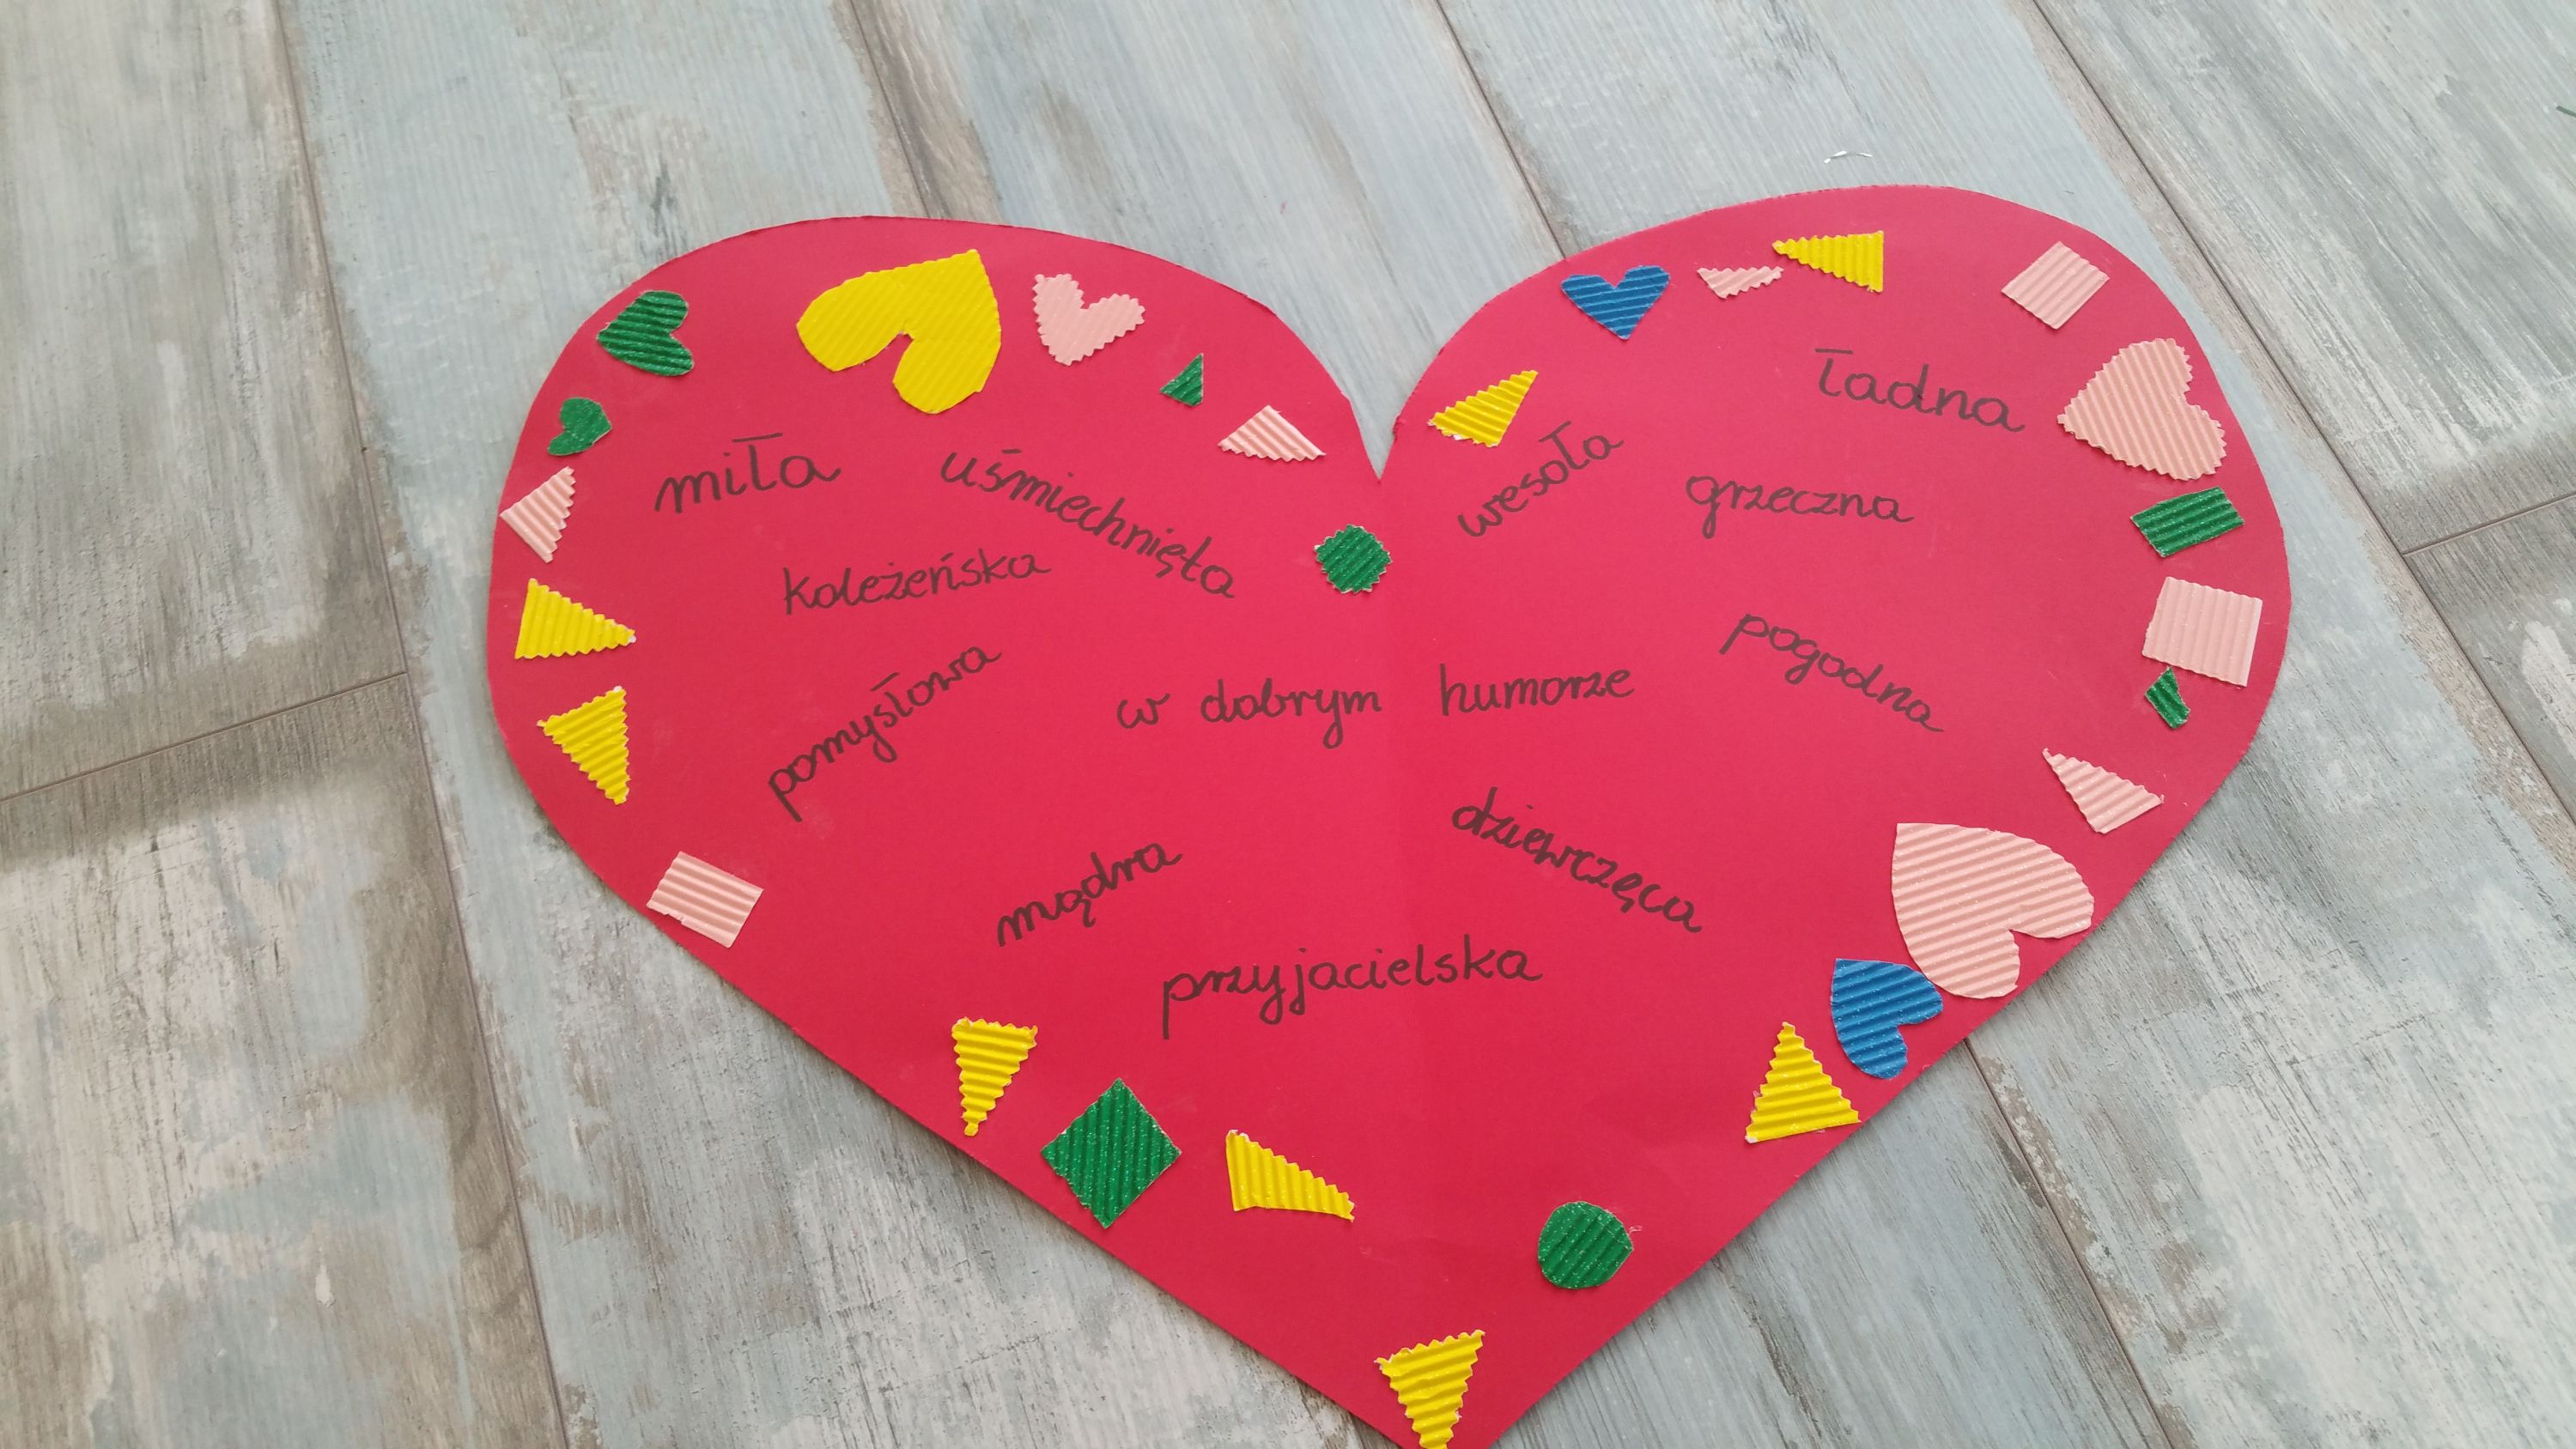 miła
uśmiechnięta
wesoła
ładna
grzeczna
koleżeńska
pomysłowa
w dobrym humorze
pogodna
mądra
dziewczęca
przyjacielska